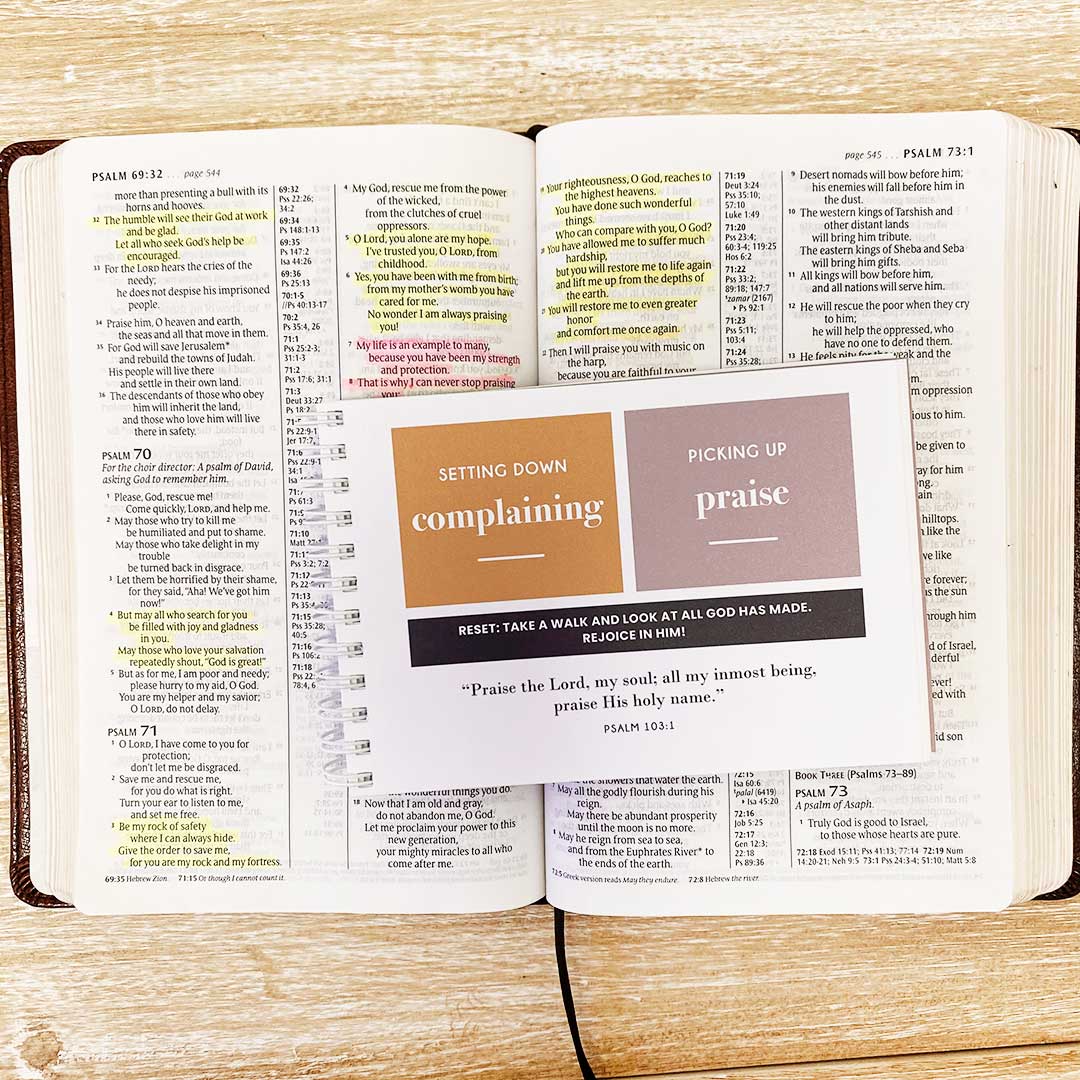 PSALM 69:32 ... page 544
more than presenting a bull with its
horns and hooves.
32 The humble will see their God at work
and be glad.
Let all who seek God's help be
encouraged.
33 For the LORD hears the cries of the
needy;
he does not despise his imprisoned
people.
34 Praise him, O heaven and earth,
the seas and all that move in them.
35 For God will save Jerusalem*
and rebuild the towns of Judah.
His people will live there
and settle in their own land.
36 The descendants of those who obey
him will inherit the land,
and those who love him will live
there in safety.
PSALM 70
For the choir director: A psalm of David,
asking God to remember him.
1 Please, God, rescue me!
Come quickly, LORD, and help me.
2 May those who try to kill me
be humiliated and put to shame.
May those who take delight in my
trouble
be turned back in disgrace.
3 Let them be horrified by their shame,
for they said, "Aha! We've got him
now!"
4 But may all who search for you
be filled with joy and gladness
in you.
May those who love your salvation
repeatedly shout, "God is great!"
5 But as for me, I am poor and needy;
please hurry to my aid, O God.
You are my helper and my savior;
O LORD, do not delay.
PSALM 71
1 O LORD, I have come to you for
protection;
don't let me be disgraced.
2 Save me and rescue me,
for you do what is right.
Turn your ear to listen to me,
and set me free.
3 Be my rock of safety
where I can always hide.
Give the order to save me,
for you are my rock and my fortress.
69:32
Pss 22:26;
34:2
69:34
Pss 148:1-13
69:35
Ps 147:2
Isa 44:26
69:36
Ps 25:13
70:1-5
//Ps 40:13-17
70:2
Ps 35:4, 26
71:1
Pss 25:2-3;
31:1-3
71:2
Pss 17:6; 31:1
71:3
Deut 33:27
Ps 18:2
Pss 22:9-1
Jer 17:7,
71:6
Pss 22:9-1
34:1
Isa
Ps 61:3
71:10
Pss 3:2; 7:2
71:12
71:13
71:15
Pss 35:28;
40:5
71:16
71:18
78:4, 6
4 My God, rescue me from the power
of the wicked,
from the clutches of cruel
oppressors.
5 O Lord, you alone are my hope.
I've trusted you, O LORD, from
childhood.
6 Yes, you have been with me from birth;
from my mother's womb you have
cared for me.
No wonder I am always praising
you!
7 My life is an example to many,
because you have been my strength
and protection.
8 That is why I can never stop praising
you;
the wonderful things you do.
18 Now that I am old and gray,
do not abandon me, O God.
Let me proclaim your power to this
new generation,
your mighty miracles to all who
come after me.
69:35 Hebrew Zion. 71:15 Or though I cannot count it.
page 545 ... PSALM 73:1
19 Your righteousness, O God, reaches to
the highest heavens.
You have done such wonderful
things.
Who can compare with you, O God?
20 You have allowed me to suffer much
hardship,
but you will restore me to life again
and lift me up from the depths of
the earth.
21 You will restore me to even greater
honor
and comfort me once again.
22 Then I will praise you with music on
the harp,
because you are faithful to your
the showers that water the earth.
7 May all the godly flourish during his
reign.
May there be abundant prosperity
until the moon is no more.
8 May he reign from sea to sea,
and from the Euphrates River* to
the ends of the earth.
71:19
Deut 3:24
Pss 35:10;
57:10
Luke 1:49
71:20
Pss 23:4;
60:3-4; 119:25
Hos 6:2
71:22
Pss 33:2;
89:18; 147:7
zamar (2167)
Ps 92:1
71:23
Pss 5:11;
103:4
71:24
Pss 35:28;
72:15
Isa 60:6
palal (6419)
Isa 45:20
72:16
Job 5:25
72:17
Gen 12:3;
22:18
Ps 89:36
9 Desert nomads will bow before him;
his enemies will fall before him in
the dust.
10 The western kings of Tarshish and
other distant lands
will bring him tribute.
The eastern kings of Sheba and Seba
will bring him gifts.
11 All kings will bow before him,
and all nations will serve him.
12 He will rescue the poor when they cry
to him;
he will help the oppressed, who
have no one to defend them.
13 He feels pity for the weak and the
m oppression
ious to him.
be given to
ay for him
ng.
ain
hilltops.
n like the
ve like
e forever;
s the sun
hrough him
d of Israel,
derful
ever!
ed with
id son
BOOK THREE (Psalms 73–89)
PSALM 73
A psalm of Asaph.
1 Truly God is good to Israel,
to those whose hearts are pure.
72:18 Exod 15:11; Pss 41:13; 77:14 72:19 Num
14:20-21; Neh 9:5 73:1 Pss 24:3-4; 51:10; Matt 5:8
72:5 Greek version reads May they endure. 72:8 Hebrew the river.
SETTING DOWN
complaining
PICKING UP
praise
RESET: TAKE A WALK AND LOOK AT ALL GOD HAS MADE.
REJOICE IN HIM!
“Praise the Lord, my soul; all my inmost being,
praise His holy name.”
PSALM 103:1